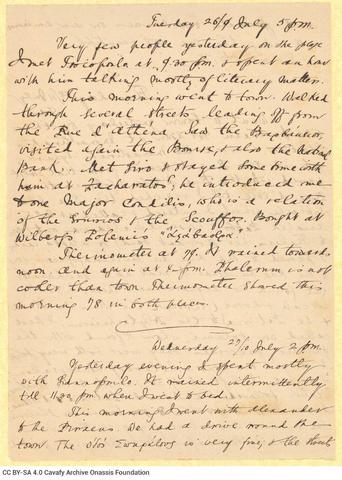 Tuesday 26/9 July 5 pm.
Very few people yesterday on the
I met Tocopolo at 9.30 pm. & spent an hour
with him talking mostly of literary matters.
This morning went to town. Walked
through several streets leading off from
the Rue d'Athena. Saw the
visited again the Bourse, & also the National
Bank. Met Siro & stayed some time with
him at Zacharatos'; he introduced me
to one Major Condilis, who is a relation
of the & the Scouffos. Bought at
Wilberg's Polemis'
Thermometer at 79. It rained towards
noon and again at 4 pm. Phalerum is not
cooler than town. Thermometer showed this
morning 78 in both places.
Wednesday 27/10 July 2 pm.
Yesterday evening I spent mostly
with It rained intermittently
till 11.30 pm. when I went to bed.
This morning I went with Alexander
to the Piraeus. We had a drive round the
town. The is very fine, & the
CC BY-SA 4.0 Cavafy Archive Onassis Foundation